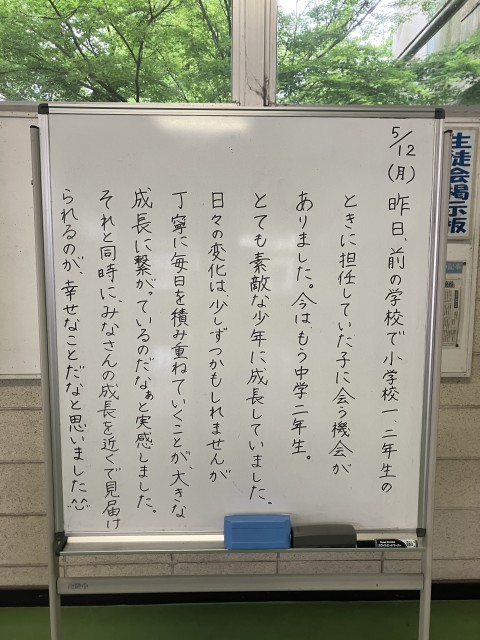 5/12(月)昨日、前の学校で小学校一、二年生の
ときに担任していた子に会う機会が
ありました。今は、もう中学二年生。
とても素敵な少年に成長していました。
日々の変化は、少しずつかもしれませんが
丁寧に毎日を積み重ねていくことが、大きな
成長に繋がっているのだなぁと実感しました。
それと同時に、みなさんの成長を近くで見届け
られるのが、幸せなことだなと思いました^^
生徒会掲示板